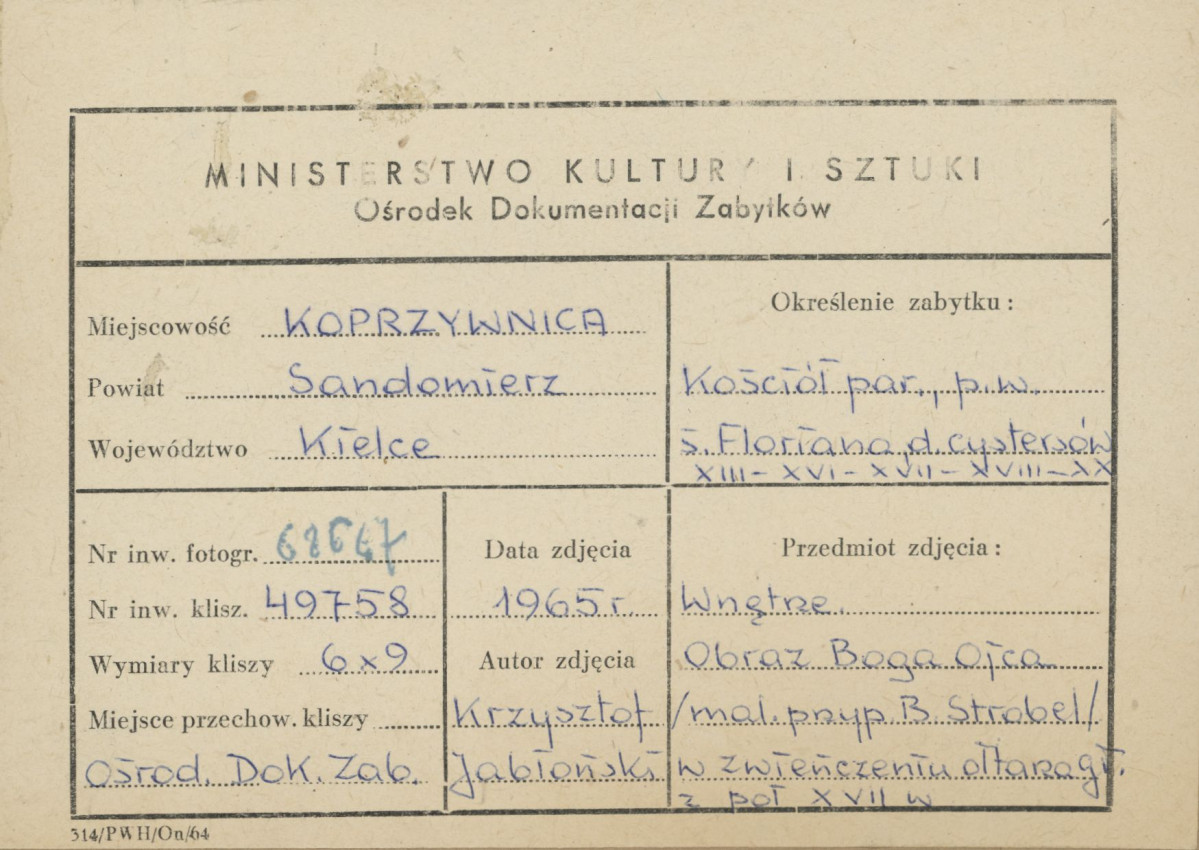 MINISTERSTWO KULTURY I SZTUKI
Ośrodek Dokumentacji Zabytków
Miejscowość KOPRZYWNICA
Powiat Sandomierz
Województwo Kielce
Określenie zabytku:
Kościół par., p.w.
ś. Floriana, d. cystersów
XIII - XVI - XVII - XVIII - XX
Nr inw. fotogr. 68647
Nr inw. klisz. 49758
Wymiary kliszy 6x9
Miejsce przechow. kliszy
Ośrod. Dok. Zab.
Data zdjęcia
1965 r.
Autor zdjęcia
Krzysztof
Jabłoński
Przedmiot zdjęcia:
Wnętrze.
Obraz Boga Ojca
/mal. przyp. B. Strobel/
w zwieńczeniu ołtarza gł.
z poł XVII w
314/PWH/On/64